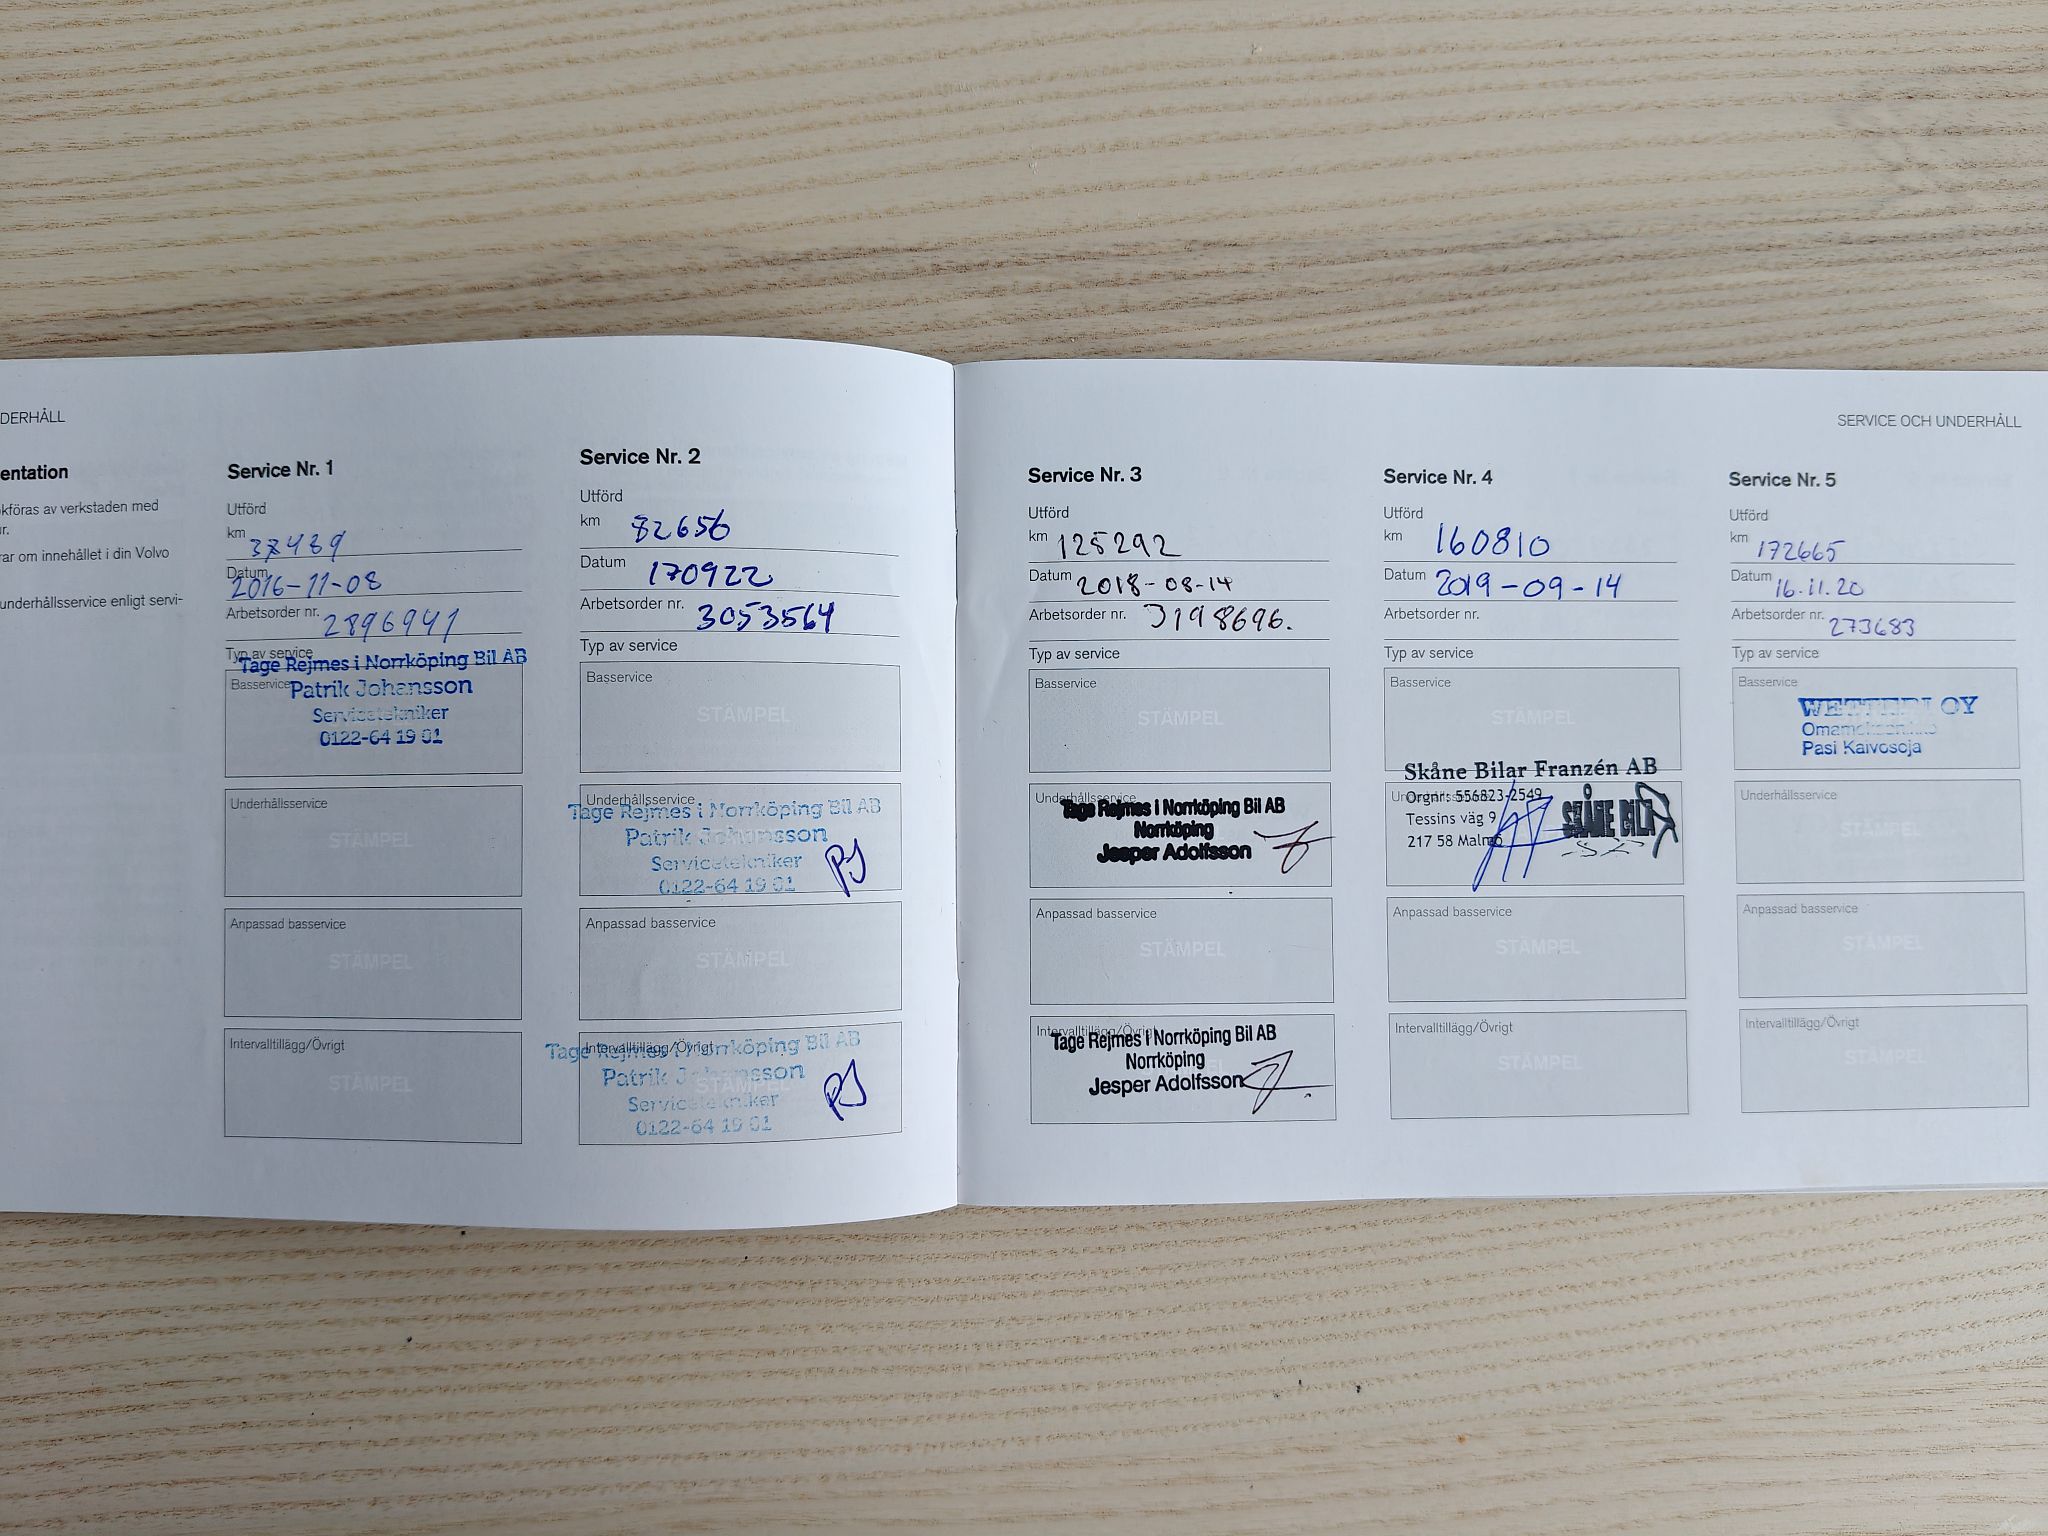 DERHÅLL
entation
kföras av verkstaden med
r.
rar om innehållet i din Volvo
underhållsservice enligt servi-
Service Nr. 1
Utförd
km
Datum
2016-11-08
Arbetsorder nr. 2896941
Typ av service
Tage Rejmes i Norrköping Bil AB
Basservice
Patrik Johansson
Servicetekniker
0122-64 19 01
Underhållsservice
STÄMPEL
Anpassad basservice
STÄMPEL
Intervalltillägg/Övrigt
STÄMPEL
Service Nr. 2
Utförd
km 82656
Datum 170922
Arbetsorder nr. 3053564
Typ av service
Basservice
STÄMPEL
Underhållsservice
Tage Rejmes i Norrköping Bil AB
Patrik Johansson
Servicetekniker
0122-64 19 01
PJ
Anpassad basservice
STÄMPEL
Intervalltillägg/Övrigt
Tage Rejmes i Norrköping Bil AB
Patrik Johansson
STÄMPEL
Servicetekniker
0122-64 19 01
PJ
SERVICE OCH UNDERHÅLL
Service Nr. 3
Utförd
km 125292
Datum 2018-08-14
Arbetsorder nr. 3198696.
Typ av service
Basservice
STÄMPEL
Underhållsservice
Tage Rejmes i Norrköping Bil AB
Norrköping
Jesper Adolfsson
Anpassad basservice
STÄMPEL
Intervalltillägg/Övrigt
Tage Rejmes i Norrköping Bil AB
Norrköping
Jesper Adolfsson
Service Nr. 4
Utförd
km 160810
Datum 2019-09-14
Arbetsorder nr.
Typ av service
Basservice
STÄMPEL
Skåne Bilar Franzén AB
Orgnr: 556823-2549
Tessins väg 9
217 58 Malmö
SKÅNE BILAR
Anpassad basservice
STÄMPEL
Intervalltillägg/Övrigt
STÄMPEL
Service Nr. 5
Utförd
km 172665
Datum 16.11.20
Arbetsorder nr. 273683
Typ av service
Basservice
WETTERI OY
Omamekaanikko
Pasi Kaivosoja
Underhållsservice
STÄMPEL
Anpassad basservice
STÄMPEL
Intervalltillägg/Övrigt
STÄMPEL